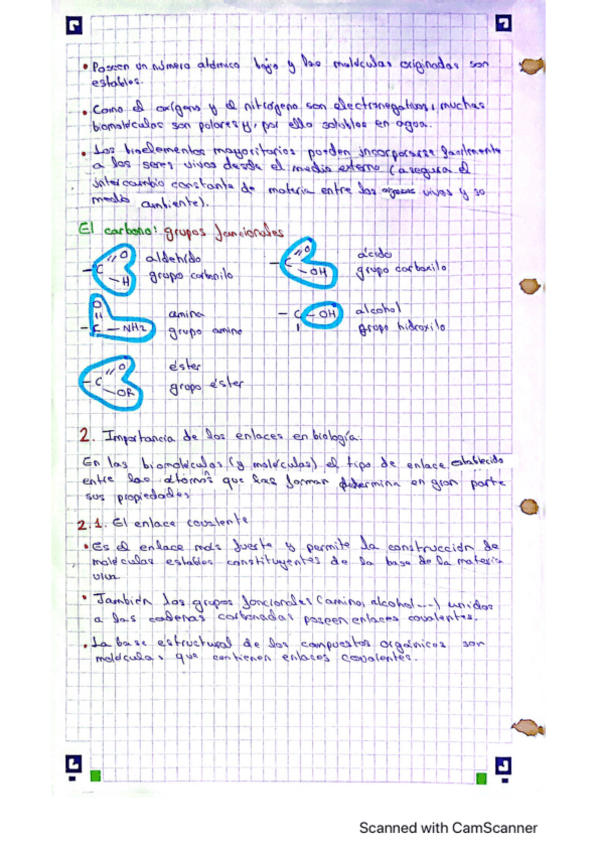 • Poseen un número atómico bajo y las moléculas originadas son
estables.
• Como el oxígeno y el nitrógeno son electronegativos, muchas
biomoléculas son polares y, por ello solubles en agua.
• Los bioelementos mayoritarios pueden incorporarse facilmente
a los seres vivos desde el medio externo (asegura el
intercambio constante de materia entre los vivos y so
medio ambiente).
El carbono: grupos funcionales
- C = O - H aldehído grupo carbonilo
- C = O - OH ácido grupo carboxilo
O = C - NH2 amina grupo amino
- C - OH alcohol grupo hidroxilo
- C = O - OR éster grupo éster
2. Importancia de los enlaces en biología.
En las biomoléculas (y moléculas) el tipo de enlace establecido
entre los átomos que las forman determina en gran parte
sus propiedades
2.1. El enlace covalente
• Es el enlace más fuerte y permite la construcción de
moléculas estables constituyentes de la base de la materia
viva
• También los grupos funcionales (amino, alcohol...) unidos
a las cadenas carbonadas poseen enlaces covalentes.
• La base estructural de los compuestos orgánicos son
moléculas que contienen enlaces covalentes.
Scanned with CamScanner